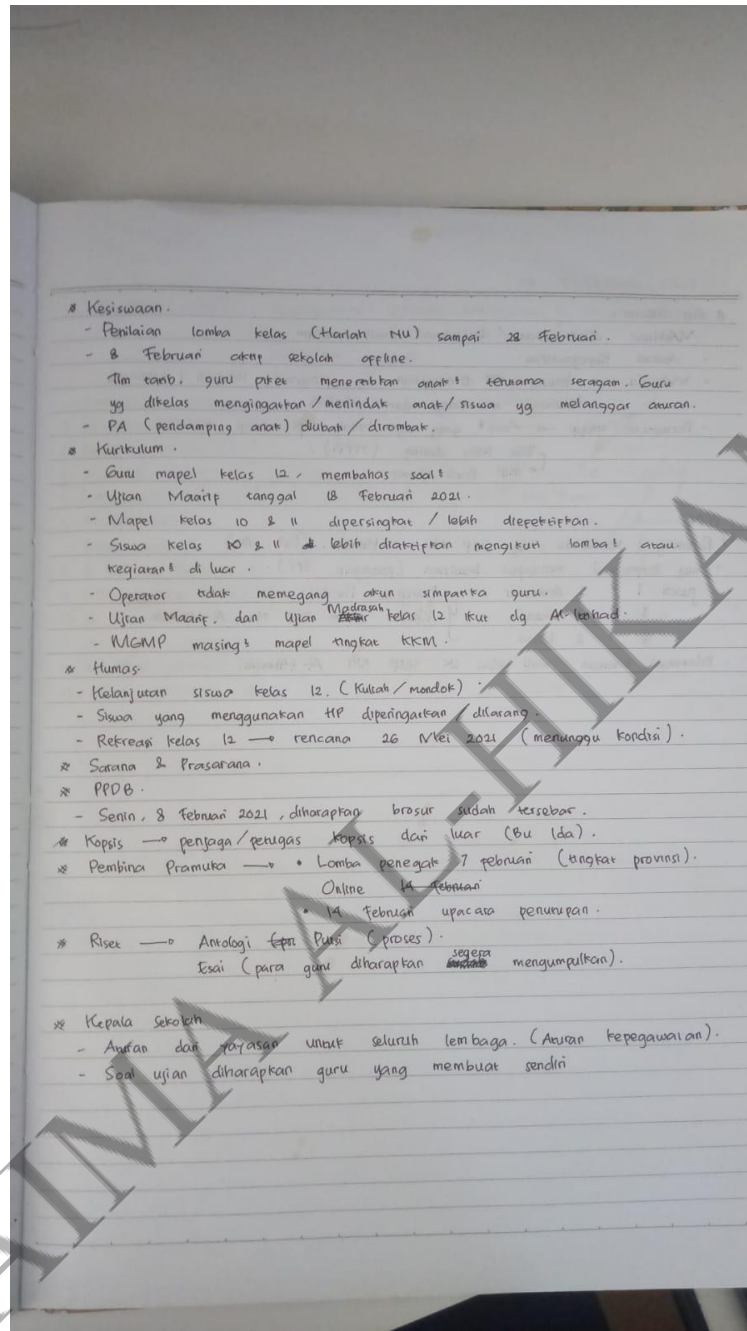 * Kesiswaan.
- Penilaian lomba kelas (Harlah NU) sampai 28 Februari.
- 8 Februari aktif sekolah offline.
Tim tatib, guru piket menerebkan anak² terutama seragam. Guru
yg dikelas mengingatkan / menindak anak/siswa yg melanggar aturan.
- PA (pendamping anak) diubah / dirombak.
* Kurikulum.
- Guru mapel kelas 12, membahas soal²
- Ujian Maarif tanggal 18 Februari 2021.
- Mapel kelas 10 & 11 dipersingkat / lebih diefektifkan.
- Siswa kelas 10 & 11 lebih diaktifkan mengikuti lomba² atau
kegiatan² di luar.
- Operator tidak memegang akun simpatika guru.
- Ujian Maarif. dan Ujian Madrasah kelas 12 ikut dg Al-Ittihad.
- MGMP masing² mapel tingkat KKM.
* Humas.
- Kelanjutan siswa kelas 12. (Kuliah / mondok)
- Siswa yang menggunakan HP diperingatkan / dilarang.
- Rekreasi kelas 12 → rencana 26 Mei 2021 (menunggu kondisi).
* Sarana & Prasarana.
* PPDB.
- Senin, 8 Februari 2021, diharapkan brosur sudah tersebar.
* Kopsis → penjaga/petugas kopsis dari luar (Bu Ida).
* Pembina Pramuka → • Lomba penegak 7 Februari (tingkat provinsi).
Online 14 Februari
• 14 Februari upacara penutupan.
* Riset → Antologi Puisi (proses).
Esai (para guru diharapkan segera mengumpulkan).
* Kepala Sekolah
- Aturan dari yayasan untuk seluruh lembaga. (Aturan kepegawaian).
- Soal ujian diharapkan guru yang membuat sendiri
AIMA AL-HIKA